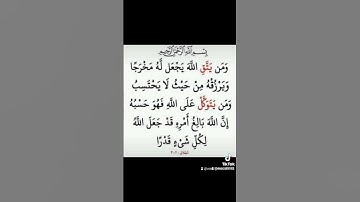 بِسْمِ اللَّهِ الرَّحْمَنِ الرَّحِيمِ
وَمَن يَتَّقِ اللَّهَ يَجْعَل لَّهُ مَخْرَجًا
وَيَرْزُقْهُ مِنْ حَيْثُ لَا يَحْتَسِبُ
وَمَن يَتَوَكَّلْ عَلَى اللَّهِ فَهُوَ حَسْبُهُ
إِنَّ اللَّهَ بَالِغُ أَمْرِهِ قَدْ جَعَلَ اللَّهُ
لِكُلِّ شَيْءٍ قَدْرًا
TikTok